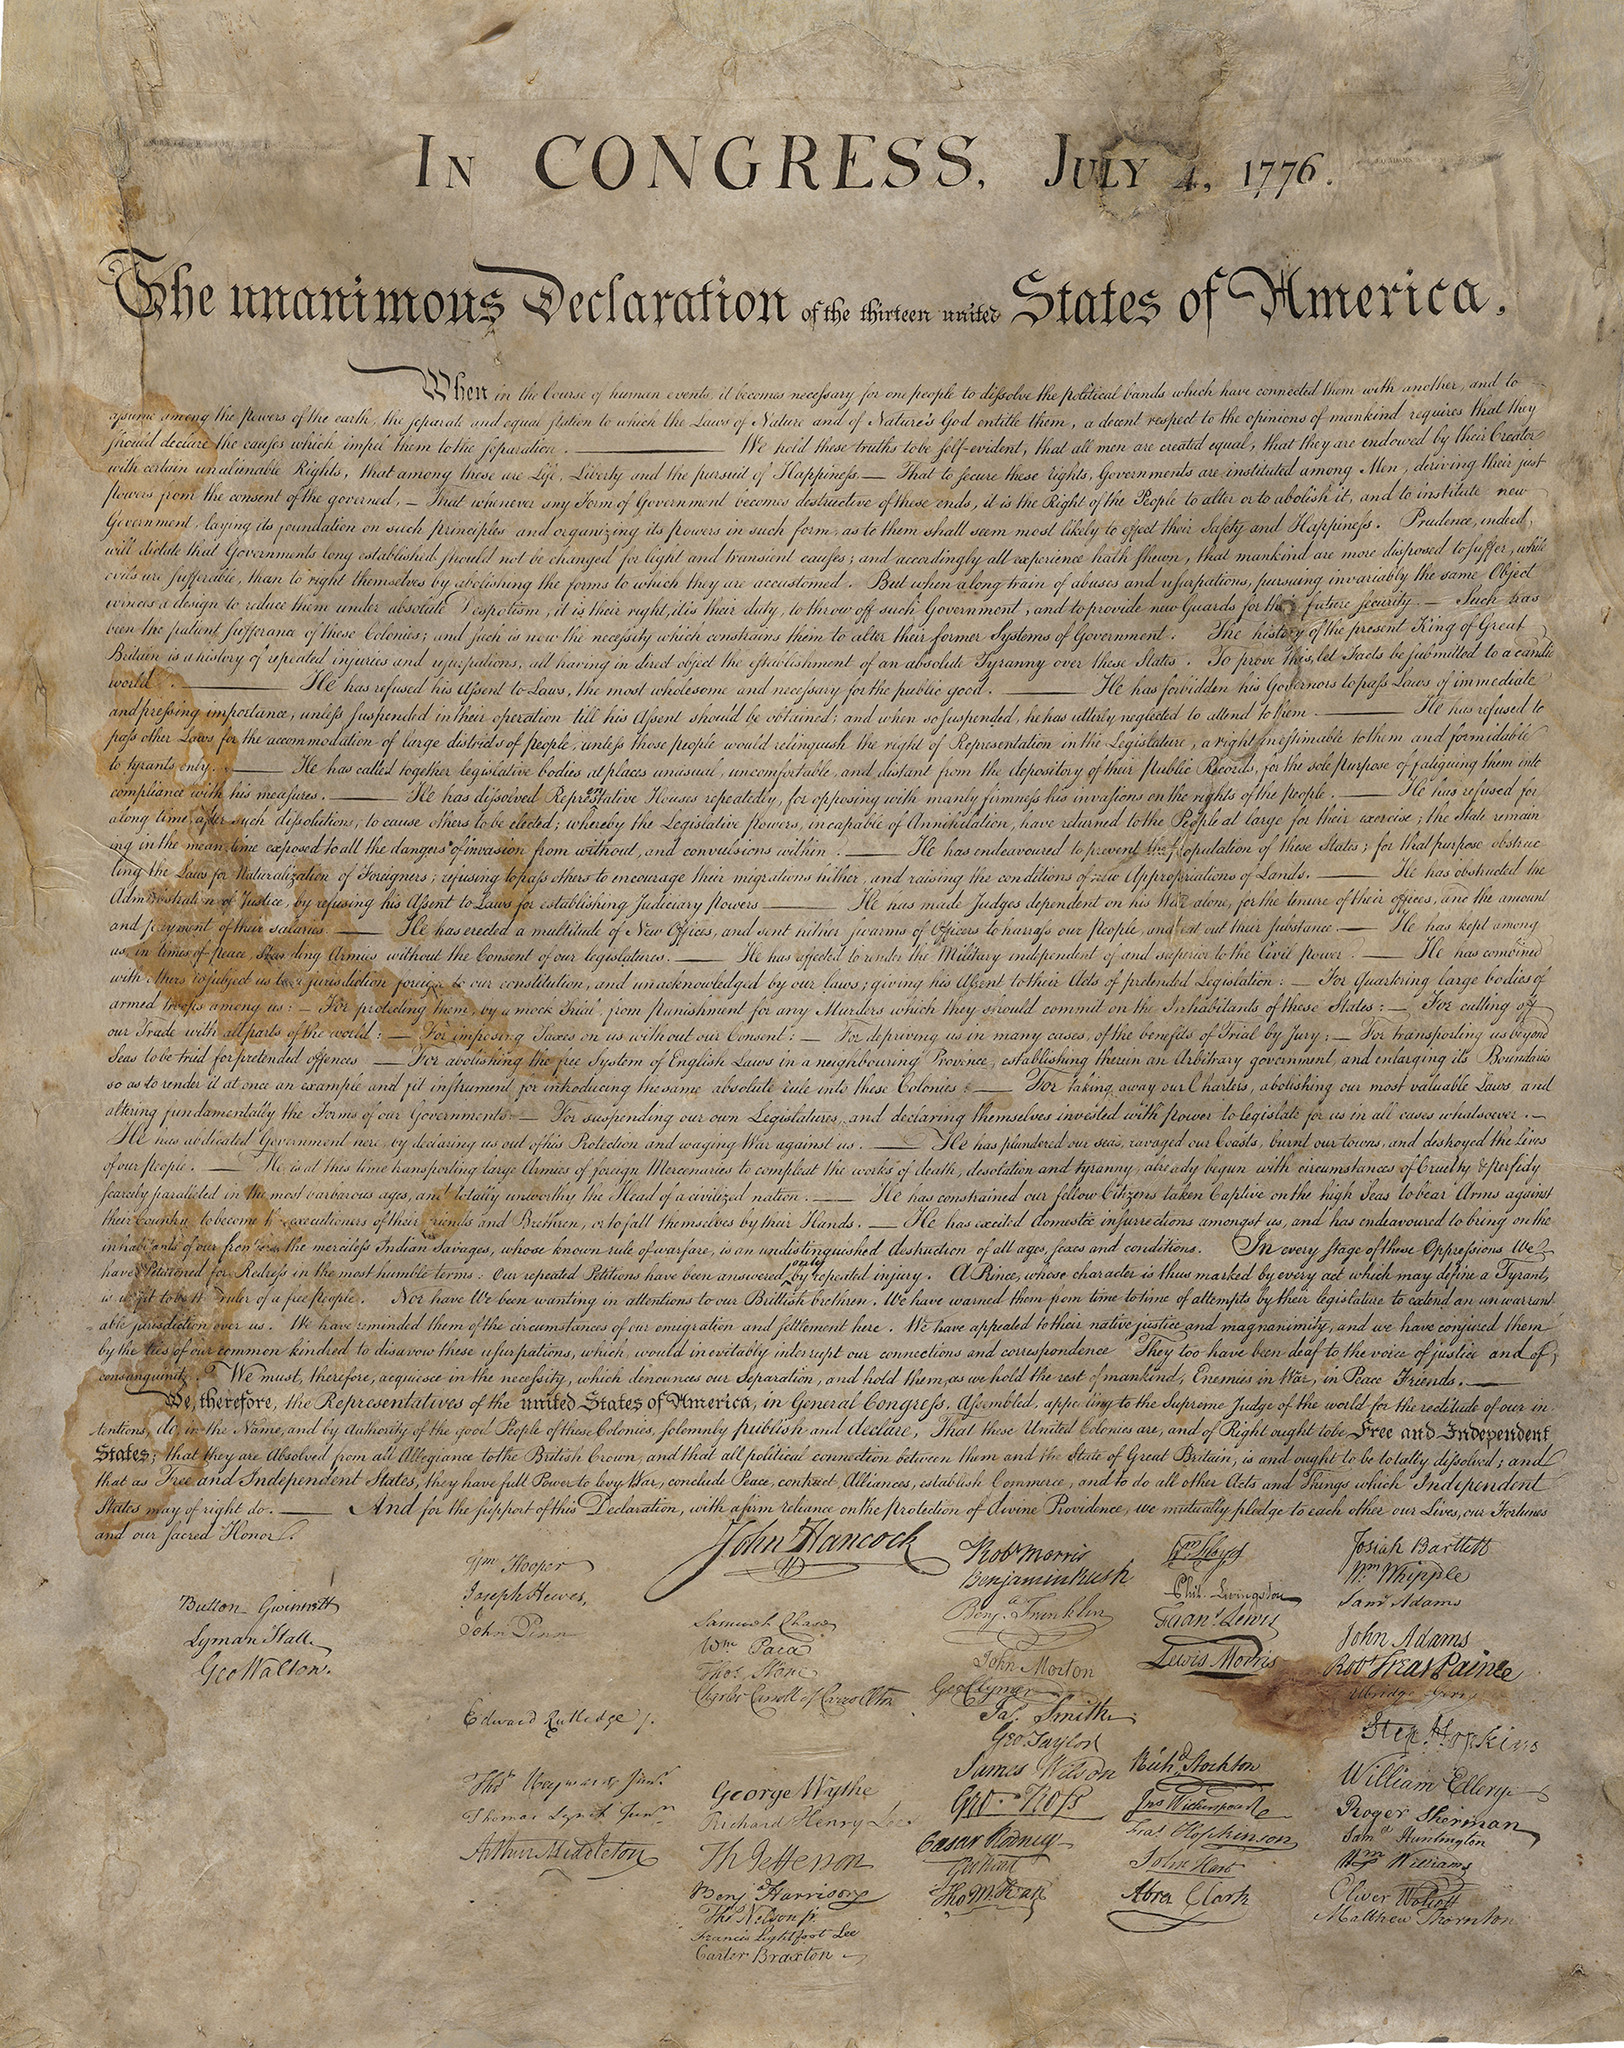 In CONGRESS, July 4, 1776.
The unanimous Declaration of the thirteen united States of America,
When in the Course of human events, it becomes necessary for one people to dissolve the political bands which have connected them with another, and to
assume among the powers of the earth, the separate and equal station to which the Laws of Nature and of Nature's God entitle them, a decent respect to the opinions of mankind requires that they
should declare the causes which impel them to the separation. — We hold these truths to be self-evident, that all men are created equal, that they are endowed by their Creator
with certain unalienable Rights, that among these are Life, Liberty and the pursuit of Happiness. — That to secure these rights, Governments are instituted among Men, deriving their just
powers from the consent of the governed, — That whenever any Form of Government becomes destructive of these ends, it is the Right of the People to alter or to abolish it, and to institute new
Government, laying its foundation on such principles and organizing its powers in such form, as to them shall seem most likely to effect their Safety and Happiness. Prudence, indeed,
will dictate that Governments long established should not be changed for light and transient causes; and accordingly all experience hath shewn, that mankind are more disposed to suffer, while
evils are sufferable, than to right themselves by abolishing the forms to which they are accustomed. But when a long train of abuses and usurpations, pursuing invariably the same Object
evinces a design to reduce them under absolute Despotism, it is their right, it is their duty, to throw off such Government, and to provide new Guards for their future security. — Such has
been the patient sufferance of these Colonies; and such is now the necessity which constrains them to alter their former Systems of Government. The history of the present King of Great
Britain is a history of repeated injuries and usurpations, all having in direct object the establishment of an absolute Tyranny over these States. To prove this, let Facts be submitted to a candid
world. — He has refused his Assent to Laws, the most wholesome and necessary for the public good. — He has forbidden his Governors to pass Laws of immediate
and pressing importance, unless suspended in their operation till his Assent should be obtained; and when so suspended, he has utterly neglected to attend to them. — He has refused to
pass other Laws for the accommodation of large districts of people, unless those people would relinquish the right of Representation in the Legislature, a right inestimable to them and formidable
to tyrants only. — He has called together legislative bodies at places unusual, uncomfortable, and distant from the depository of their public Records, for the sole purpose of fatiguing them into
compliance with his measures. — He has dissolved Representative Houses repeatedly, for opposing with manly firmness his invasions on the rights of the people. — He has refused for
a long time, after such dissolutions, to cause others to be elected; whereby the Legislative powers, incapable of Annihilation, have returned to the People at large for their exercise; the State remain
ing in the mean time exposed to all the dangers of invasion from without, and convulsions within. — He has endeavoured to prevent the population of these States; for that purpose obstruc
ting the Laws for Naturalization of Foreigners; refusing to pass others to encourage their migrations hither, and raising the conditions of new Appropriations of Lands. — He has obstructed the
Administration of Justice, by refusing his Assent to Laws for establishing Judiciary powers — He has made Judges dependent on his Will alone, for the tenure of their offices, and the amount
and payment of their salaries. — He has erected a multitude of New Offices, and sent hither swarms of Officers to harrass our people, and eat out their substance. — He has kept among
us, in times of peace, Standing Armies without the Consent of our legislatures. — He has affected to render the Military independent of and superior to the Civil power. — He has combined
with others to subject us to a jurisdiction foreign to our constitution, and unacknowledged by our laws; giving his Assent to their Acts of pretended Legislation: — For Quartering large bodies of
armed troops among us: — For protecting them, by a mock Trial, from punishment for any Murders which they should commit on the Inhabitants of these States: — For cutting off
our Trade with all parts of the world: — For imposing Taxes on us without our Consent: — For depriving us in many cases, of the benefits of Trial by Jury: — For transporting us beyond
Seas to be tried for pretended offences — For abolishing the free System of English Laws in a neighbouring Province, establishing therein an Arbitrary government, and enlarging its Boundaries
so as to render it at once an example and fit instrument for introducing the same absolute rule into these Colonies: — For taking away our Charters, abolishing our most valuable Laws, and
altering fundamentally the Forms of our Governments: — For suspending our own Legislatures, and declaring themselves invested with power to legislate for us in all cases whatsoever. —
He has abdicated Government here, by declaring us out of his Protection and waging War against us. — He has plundered our seas, ravaged our Coasts, burnt our towns, and destroyed the Lives
of our people. — He is at this time transporting large Armies of foreign Mercenaries to compleat the works of death, desolation and tyranny, already begun with circumstances of Cruelty & perfidy
scarcely paralleled in the most barbarous ages, and totally unworthy the Head of a civilized nation. — He has constrained our fellow Citizens taken Captive on the high Seas to bear Arms against
their Country, to become the executioners of their friends and Brethren, or to fall themselves by their Hands. — He has excited domestic insurrections amongst us, and has endeavoured to bring on the
inhabitants of our frontiers, the merciless Indian Savages, whose known rule of warfare, is an undistinguished destruction of all ages, sexes and conditions. In every stage of these Oppressions We
have Petitioned for Redress in the most humble terms: Our repeated Petitions have been answered only by repeated injury. A Prince, whose character is thus marked by every act which may define a Tyrant,
is unfit to be the ruler of a free people. Nor have We been wanting in attentions to our Brittish brethren. We have warned them from time to time of attempts by their legislature to extend an unwarrant
able jurisdiction over us. We have reminded them of the circumstances of our emigration and settlement here. We have appealed to their native justice and magnanimity, and we have conjured them
by the ties of our common kindred to disavow these usurpations, which, would inevitably interrupt our connections and correspondence They too have been deaf to the voice of justice and of
consanguinity. We must, therefore, acquiesce in the necessity, which denounces our Separation, and hold them, as we hold the rest of mankind, Enemies in War, in Peace Friends. —
We, therefore, the Representatives of the united States of America, in General Congress, Assembled, appealing to the Supreme Judge of the world for the rectitude of our in
tentions, do, in the Name, and by Authority of the good People of these Colonies, solemnly publish and declare, That these United Colonies are, and of Right ought to be Free and Independent
States; that they are Absolved from all Allegiance to the British Crown, and that all political connection between them and the State of Great Britain, is and ought to be totally dissolved; and
that as Free and Independent States, they have full Power to levy War, conclude Peace, contract Alliances, establish Commerce, and to do all other Acts and Things which Independent
States may of right do. — And for the support of this Declaration, with a firm reliance on the protection of divine Providence, we mutually pledge to each other our Lives, our Fortunes
and our sacred Honor.
John Hancock
Button Gwinnett
Lyman Hall
Geo Walton.
Wm Hooper
Joseph Hewes,
John Penn
Edward Rutledge /.
Thos Heyward Junr.
Thomas Lynch Junr.
Arthur Middleton
Samuel Chase
Wm. Paca
Thos. Stone
Charles Carroll of Carrollton
George Wythe
Richard Henry Lee
Th Jefferson
Benja Harrison
Thos Nelson jr.
Francis Lightfoot Lee
Carter Braxton
Robt Morris
Benjamin Rush
Benja. Franklin
John Morton
Geo Clymer
Jas. Smith
Geo. Taylor
James Wilson
Geo. Ross
Caesar Rodney
Geo Read
Tho M:Kean
Wm Floyd
Phil. Livingston
Frans. Lewis
Lewis Morris
Richd. Stockton
Jno Witherspoon
Fras. Hopkinson
John Hart
Abra Clark
Josiah Bartlett
Wm. Whipple
Saml Adams
John Adams
Robt Treat Paine
Elbridge Gerry
Step. Hopkins
William Ellery
Roger Sherman
Saml. Huntington
Wm. Williams
Oliver Wolcott
Matthew Thornton